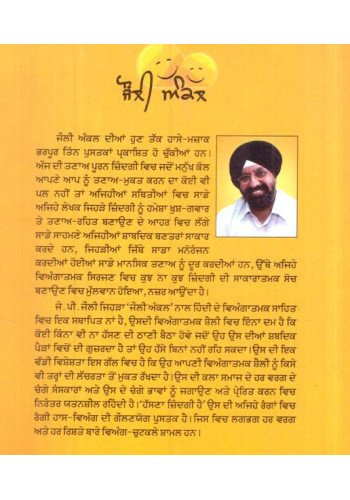 ਜੌਲੀ ਅੰਕਲ
ਜੌਲੀ ਅੰਕਲ ਦੀਆਂ ਹੁਣ ਤੱਕ ਹਾਸੇ-ਮਜ਼ਾਕ
ਭਰਪੂਰ ਤਿੰਨ ਪੁਸਤਕਾਂ ਪ੍ਰਕਾਸ਼ਿਤ ਹੋ ਚੁੱਕੀਆਂ ਹਨ।
ਅੱਜ ਦੀ ਤਣਾਅ ਪੂਰਨ ਜ਼ਿੰਦਗੀ ਵਿਚ ਜਦੋਂ ਮਨੁੱਖ ਕੋਲ
ਆਪਣੇ ਆਪ ਨੂੰ ਤਣਾਅ-ਮੁਕਤ ਕਰਨ ਦਾ ਕੋਈ ਵੀ
ਪਲ ਨਹੀਂ ਤਾਂ ਅਜਿਹੀਆਂ ਸਥਿਤੀਆਂ ਵਿਚ ਸਾਡੇ
ਅਜਿਹੇ ਲੇਖਕ ਜਿਹੜੇ ਜ਼ਿੰਦਗੀ ਨੂੰ ਹਮੇਸ਼ਾ ਖੁਸ਼-ਗਵਾਰ
ਤੇ ਤਣਾਅ-ਰਹਿਤ ਬਣਾਉਣ ਦੇ ਆਹਰ ਵਿਚ ਲੱਗੇ
ਸਾਡੇ ਸਾਹਮਣੇ ਅਜਿਹੀਆਂ ਸ਼ਾਬਦਿਕ ਬਣਤਰਾਂ ਸਾਕਾਰ
ਕਰਦੇ ਹਨ, ਜਿਹੜੀਆਂ ਜਿੱਥੇ ਸਾਡਾ ਮਨੋਰੰਜਨ
ਕਰਦੀਆਂ ਹੋਈਆਂ ਸਾਡੇ ਮਾਨਸਿਕ ਤਣਾਅ ਨੂੰ ਦੂਰ ਕਰਦੀਆਂ ਹਨ, ਉੱਥੇ ਅਜਿਹੇ
ਵਿਅੰਗਾਤਮਕ ਸਿਰਜਣ ਵਿਚ ਕੁਝ ਨਾ ਕੁਝ ਜ਼ਿੰਦਗੀ ਦੀ ਸਾਕਾਰਾਤਮਕ ਸੋਚ
ਬਣਾਉਣ ਵਿਚ ਮੁੱਲਵਾਨ ਹੋਇਆ, ਨਜ਼ਰ ਆਉਂਦਾ ਹੈ।
ਜੇ. ਪੀ. ਜੌਲੀ ਜਿਹੜਾ 'ਜੌਲੀ ਅੰਕਲ' ਨਾਲ ਹਿੰਦੀ ਦੇ ਵਿਅੰਗਾਤਮਕ ਸਾਹਿਤ
ਵਿਚ ਇਕ ਸਥਾਪਿਤ ਨਾਂ ਹੈ, ਉਸਦੀ ਵਿਅੰਗਾਤਮਕ ਸ਼ੈਲੀ ਵਿਚ ਇੰਨਾ ਦਮ ਹੈ ਕਿ
ਕੋਈ ਕਿੰਨਾ ਵੀ ਨਾ ਹੱਸਣ ਦੀ ਠਾਣੀ ਬੈਠਾ ਹੋਵੇ ਜਦੋਂ ਉਹ ਉਸ ਦੀਆਂ ਸ਼ਾਬਦਿਕ
ਪੈੜਾਂ ਵਿਚੋਂ ਦੀ ਗੁਜ਼ਰਦਾ ਹੈ ਤਾਂ ਉਹ ਹੱਸੇ ਬਿਨਾਂ ਨਹੀਂ ਰਹਿ ਸਕਦਾ। ਉਸ ਦੀ ਇਕ
ਵੱਡੀ ਵਿਸ਼ੇਸ਼ਤਾ ਇਸ ਗੱਲ ਵਿਚ ਹੈ ਕਿ ਉਹ ਆਪਣੀ ਵਿਅੰਗਾਤਮਕ ਸ਼ੈਲੀ ਨੂੰ ਕਿਸੇ
ਵੀ ਤਰ੍ਹਾਂ ਦੀ ਲੱਚਰਤਾ ਤੋਂ ਮੁਕਤ ਰੱਖਦਾ ਹੈ। ਉਸ ਦੀ ਕਲਾ ਸਮਾਜ ਦੇ ਹਰ ਵਰਗ ਦੇ
ਚੰਗੇ ਸੰਸਕਾਰਾਂ ਅਤੇ ਉਸ ਦੇ ਚੰਗੇ ਭਾਵਾਂ ਨੂੰ ਜਗਾਉਣ ਅਤੇ ਪ੍ਰੇਰਿਤ ਕਰਨ ਵਿਚ
ਨਿਰੰਤਰ ਯਤਨਸ਼ੀਲ ਰਹਿੰਦੀ ਹੈ। 'ਹੱਸਣਾ ਜ਼ਿੰਦਗੀ ਹੈ' ਉਸ ਦੀ ਅਜਿਹੇ ਰੰਗਾਂ ਵਿਚ
ਰੰਗੀ ਹਾਸ-ਵਿਅੰਗ ਦੀ ਗੌਲਣਯੋਗ ਪੁਸਤਕ ਹੈ। ਜਿਸ ਵਿਚ ਲਗਭਗ ਹਰ ਵਰਗ
ਅਤੇ ਹਰ ਰਿਸ਼ਤੇ ਬਾਰੇ ਵਿਅੰਗ-ਚੁਟਕਲੇ ਸ਼ਾਮਲ ਹਨ।